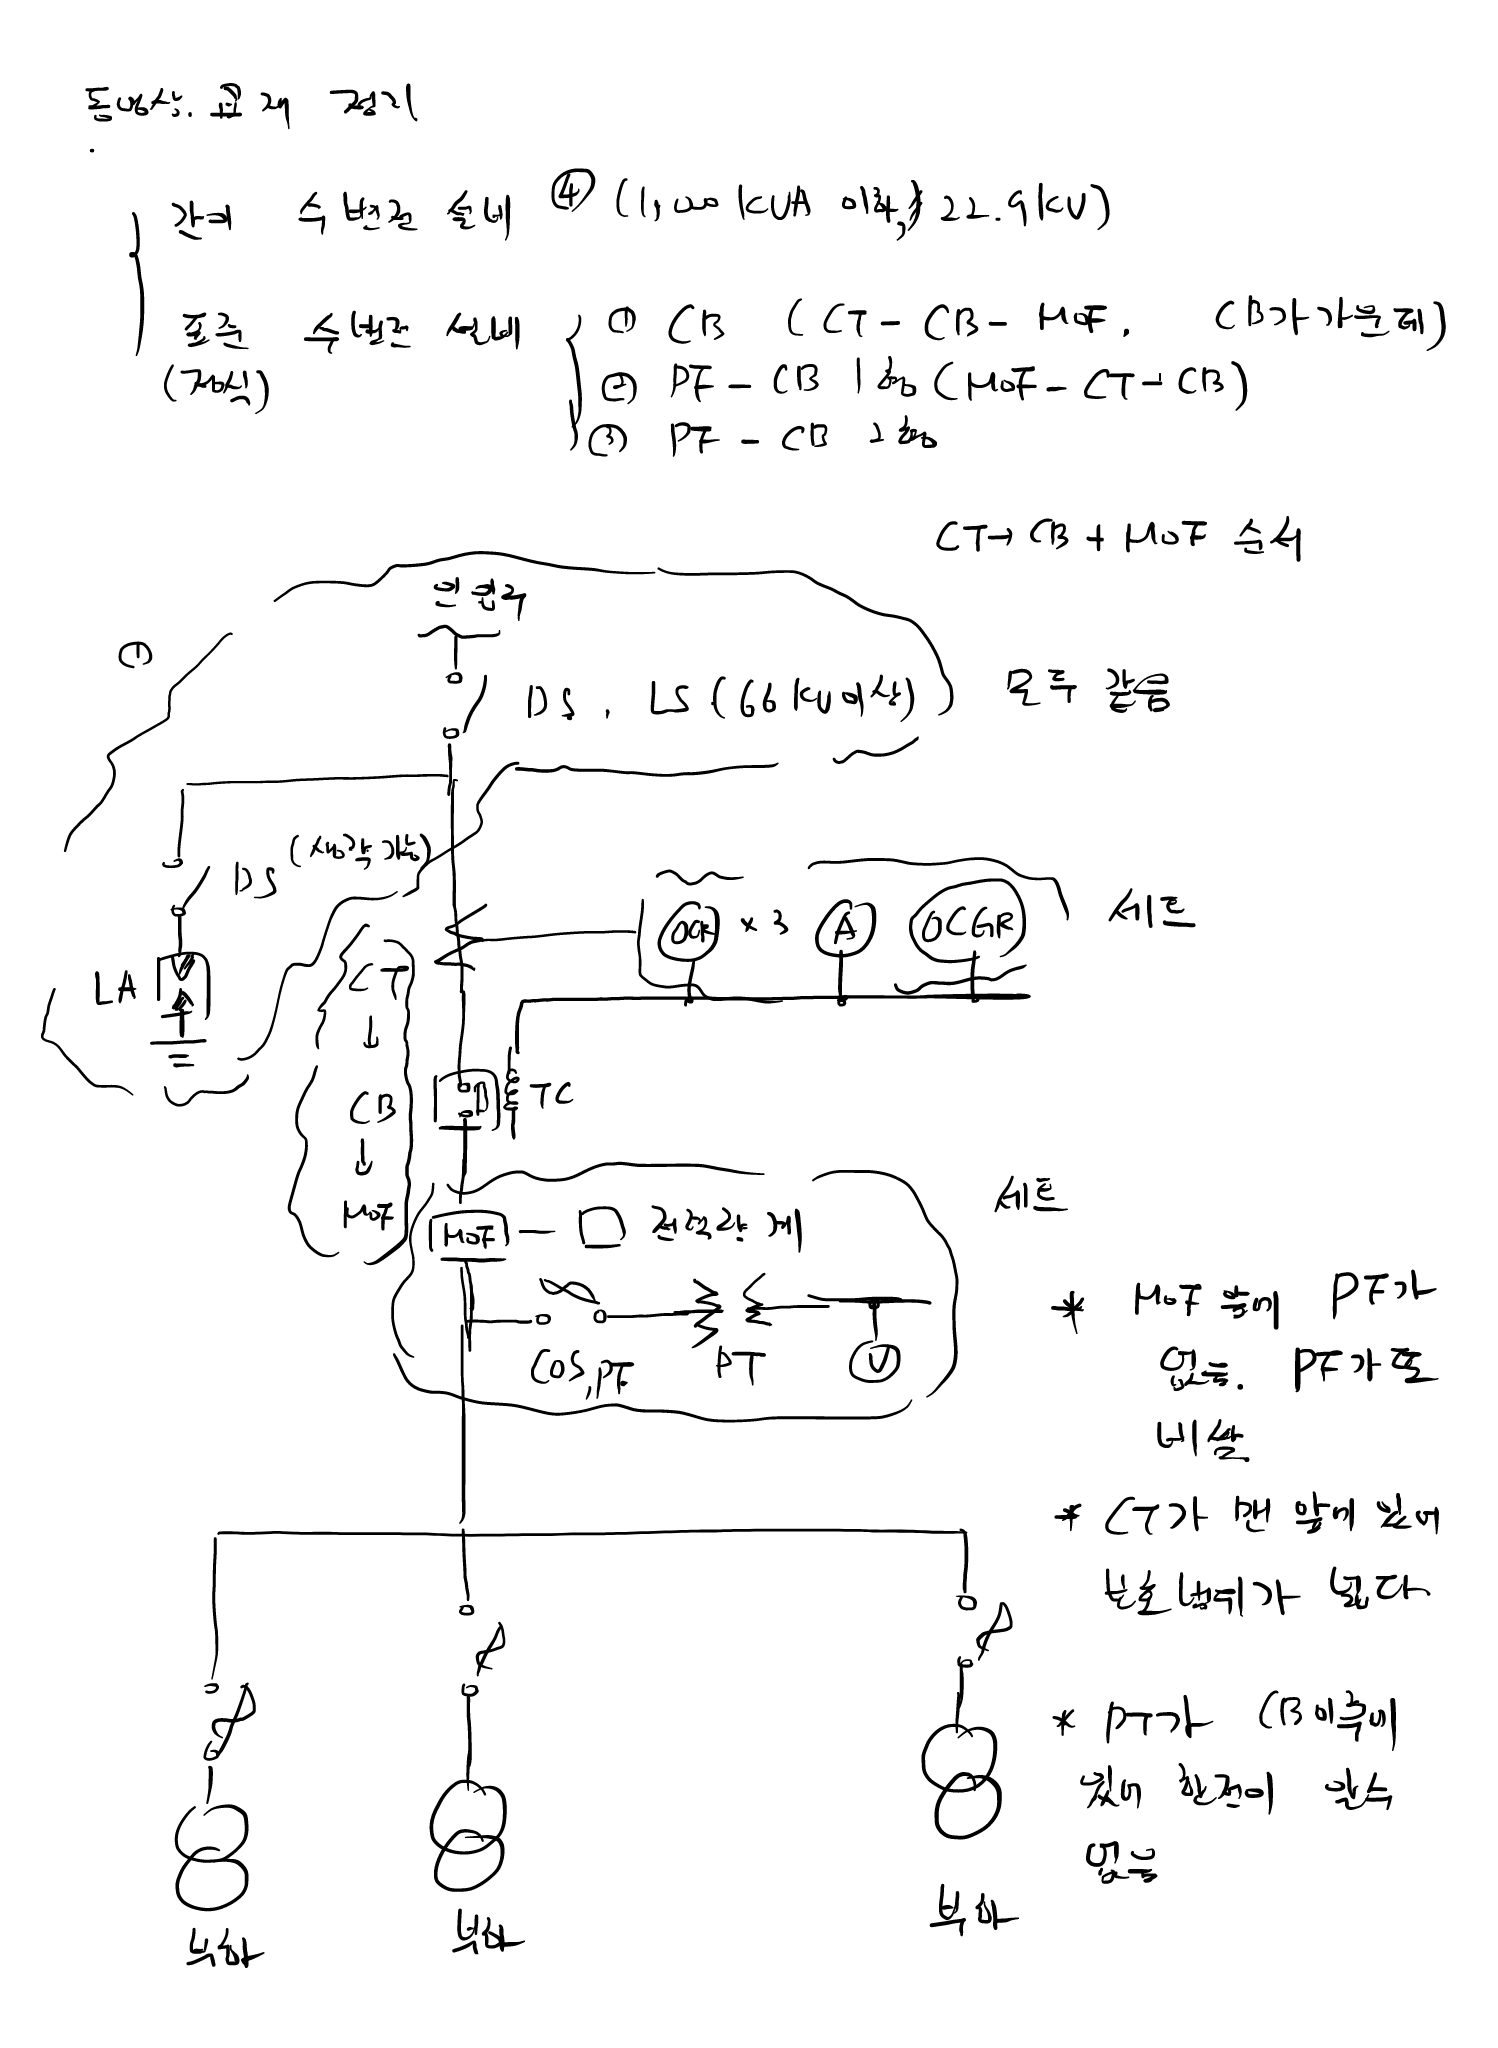 동영상. 교재 정리
간이 수변전 설비 ④ (1,000 KVA 이하, 22.9KV)
표준 수변전 설비 ① CB (CT - CB - MOF. CB가 가운데)
(정식) ② PF - CB 1형 (MOF - CT - CB)
③ PF - CB 2형
CT → CB + MOF 순서
인입구
①
DS. LS (66KV이상) 모두 같음
DS (생략가능)
OCR × 3 A OCGR 세트
LA
CT
↓
CB TC
↓
MOF
세트
MOF - □ 전력량계
COS, PF PT V
* MOF 앞에 PF가
없음. PF가 또
비쌈
* CT가 맨 앞에 있어
보호범위가 넓다
* PT가 CB이후에
있어 한전이 알수
없음
부하 부하 부하